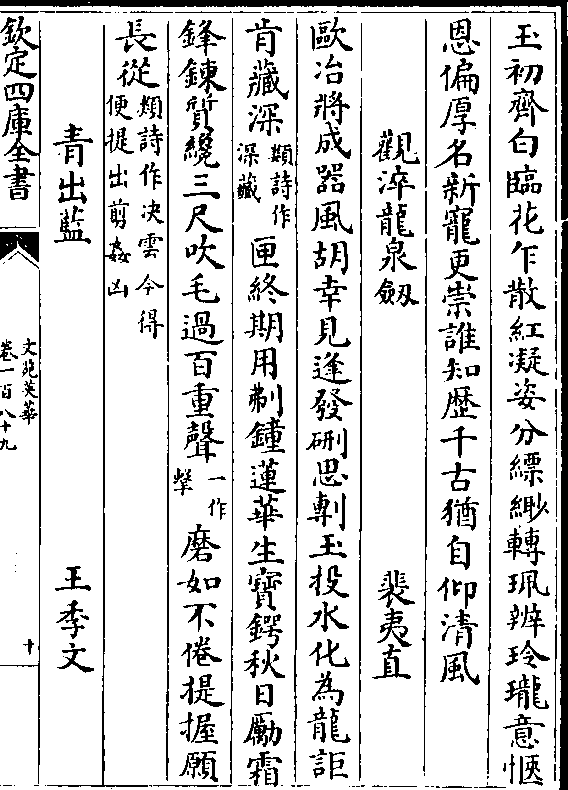 玉初齊白臨花乍散紅凝姿分縹緲轉珮辨玲瓏意愜
恩偏厚名新寵更崇誰知歴千古猶自仰清風
觀淬龍泉劔 裴夷直
歐冶將成器風胡幸見逢發硎思剸玉投水化為龍詎
肯藏深類詩作深藏匣終期用刜鐘蓮華生寳鍔秋日勵霜
鋒鍊質纔三尺吹毛過百重聲一作擊磨如不倦提握願
長從類詩作决雲今得便提出剪姦凶
青出藍 王季文
欽定四庫全書
文苑英華
卷一百八十九
十